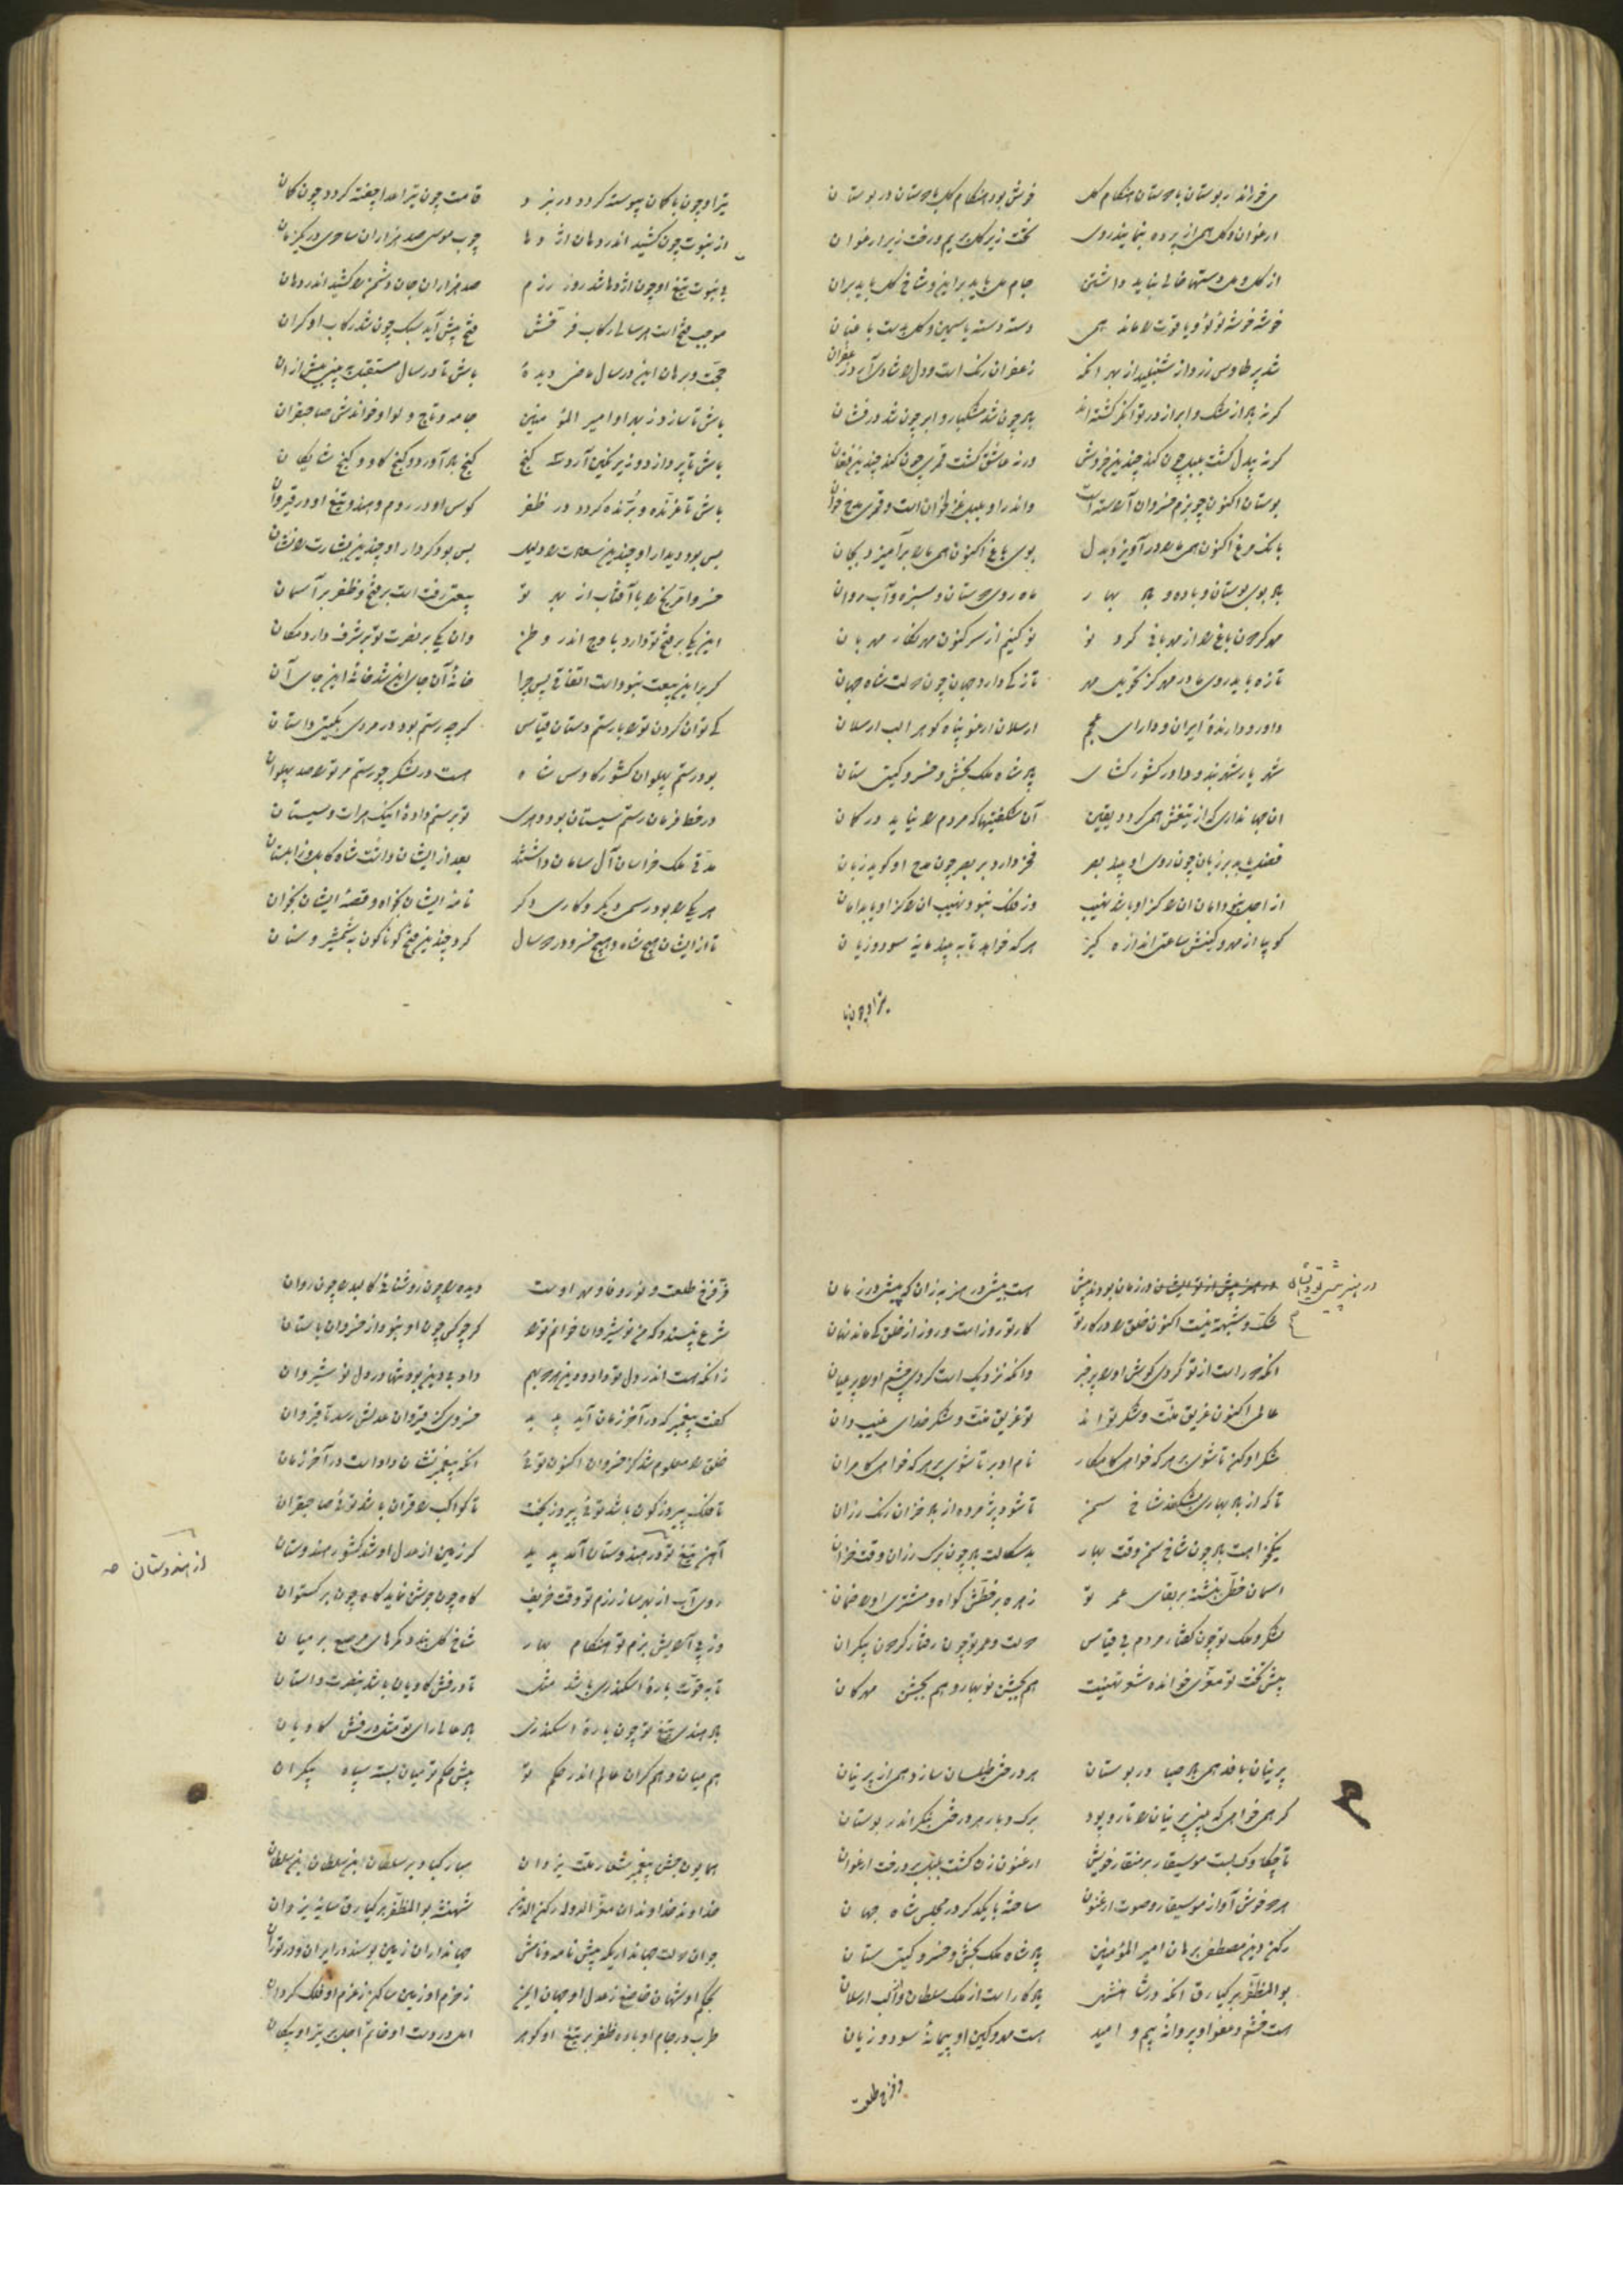 می خوراند از بوستان با دوستان هنگام گل خوش بود هنگام گل با دوستان در بوستان
ارغوان و گل همی از پرده بنمایند روی تخت زیر گل بریم و رخت زیر ارغوان
از گل و مل دستها خالی نباید داشتن جام مل باید بر این و شاخ گل باید بر آن
خوشه خوشه لؤلؤ و یاقوت را ماند همی دسته دسته یاسمین و گل بدست باغبان
شد پر طاوس زرد از شنبلید از بهر آنکه زعفران رنگ است و دل را شادی آرد زعفران
گر نه باد از مشک و ابر از در توانگر گشته‌اند باد چون شد مشکبار و ابر چون شد درفشان
گر نه بیدل گشت بلبل چون کند چندین خروش ور نه عاشق گشت قمری چون کند چندین فغان
بوستان اکنون چو بزم خسروان آراسته است واندر او بلبل غزلخوان است و قمری مدح خوان
بانگ مرغ اکنون همی ما را درآویزد بدل بوی باغ اکنون همی ما را برآمیزد بجان
باد بوی بوستان و باده و باد بهار ماه روی دوستان و سبزه و آب روان
مهرگر چون باغ را از مهربانی کرد نو نو کنیم از سر کنون مهر نگار مهربان
تازه باید روی ما در مهر کز تحویل مهر تازگی دارد جهان چون دولت شاه جهان
داور و دارنده ایران و دارای عجم ارسلان ارغو پناه گوهر الب ارسلان
شهریار شهربند و داور کشور گشای پادشاه ملک بخش و خسرو گیتی ستان
آن جهانداری که از تیغش همی گردد یقین آن شگفتیها که مردم را نیاید در گمان
فضل یابد بر زبان چون روی او بیند بصر فخر دارد بر بصر چون مدح او گوید زبان
از اجل نبود امان آن را کز او باشد نهیب وز فلک نبود نهیب آن را کز او یابد امان
گویی از مهر و کینش ساعتی اندازه گیر هر که خواهد تا ببیند مایه سود و زیان
تیر او چون با
تیر او چون با کمان پیوسته گردد در نبرد قامت چون تیر اعدا چفته گردد چون کمان
از نبوت چون کشید اندر دهان اژدها چوب موسی صد هزاران ساحری در یک زمان
بی نبوت تیغ او چون اژدها شد روز رزم صد هزاران جان دشمن را کشید اندر دهان
موجب فتح است هر سالی رکاب فرخش فتح پیش آید سبک چون شد رکاب او گران
حجت و برهان این در سال ماضی دیده‌ای باش تا در سال مستقبل ببینی بیش از آن
باش تا سازد ز بهر او امیر المؤمنین جامه و تاج و لوا و خواندش صاحبقران
باش تا پردازد و زیر نگین آرد سه گنج گنج باد آورد و گنج گاو و گنج شایگان
باش تا غرنده و برنده گردد در ظفر کوس او در روم و هند و تیغ او در قیروان
بس بود دیدار او چندین سعادت را دلیل بس بود کردار او چندین بشارت را نشان
خسروا مریخ را با آفتاب از بهر تو بیعتی رفت است بر فتح و ظفر بر آسمان
این یکی بر فتح تو دارد باوج اندر وطن وان یکی بر نصرت تو بر شرف دارد مکان
گر بر این بیعت نبود است اتفاق پس چرا خانه آن جای این شد خانه این جای آن
کی توان کردن تو را با رستم دستان قیاس گرچه رستم بود در مردی بگیتی داستان
بود رستم پهلوان کشور کاوس شاه هست در لشکر چو رستم مر تو را صد پهلوان
در خط فرمان رستم سیستان بود و هری تو برستم داده‌ای اینک هرات و سیستان
مدتی ملک خراسان آل سامان داشتند بعد از ایشان داشت شاه کابل و زابلستان
هر یکی را بود رسمی دیگر و کاری دگر نامه ایشان بخواه و قصه ایشان بخوان
تا از ایشان هیچ شاه و هیچ خسرو در دو سال کرد چندین فتح گوناگون بشمشیر و سنان
در هنر پیش از تو شاهان در زمان بودند پیش هست بیشی در هنر به زان که پیشی در زمان
شک و شبهت نیست اکنون خلق را در کار تو کار تو روز است و روز از خلق کی ماند نهان
آنکه دور است از تو کردی گوش او را پر خبر وانکه نزدیک است کردی چشم او را پر عیان
عالمی اکنون غریق منت و شکر تو اند تو غریق منت و شکر خدای غیب دان
شکر او کن تا شوی بر هر که خواهی کامکار نام او بر تا شوی بر هر که خواهی کامران
تا که از باد بهاری بشکفد شاخ سمن تا شود پژمرده از باد خزان رنگ رزان
نیکخواهت باد چون شاخ سمن وقت بهار بدسگالت باد چون برگ رزان وقت خزان
آسمان خطی نبشته بر بقای عمر تو زهره بر خطش گواه و مشتری او را ضمان
لشکر و ملک تو چون گفتار مردم بی قیاس دولت و عمر تو چون رفتار گردون بیکران
پیش تخت تو معزی خوانده شعر تهنیت هم بجشن نوبهار و هم بجشن مهرگان
پرنیان بافد همی باد صبا در بوستان هر درختی طیلسان سازد همی از پرنیان
گر همی خواهی که بینی پرنیان را تار و پود برگ و بار هر درختی بنگر اندر بوستان
تا چکاوک بست موسیقار بر منقار خویش ارغنون زن گشت بلبل بر درخت ارغوان
هر دو خوش آواز موسیقار و صوت ارغنون ساخته با یکدگر در مجلس شاه جهان
رکن دین مصطفی برهان امیر المؤمنین پادشاه ملک بخش و خسرو گیتی ستان
بوالمظفر برکیارق آنکه در شاهنشهی یادگار است از ملک سلطان و الب ارسلان
هست خشم و عفو او پروانه بیم و امید هست مهر و کین او پیمانه سود و زیان
فر فرخ طلعت
فر فرخ طلعت و نور دفا و مهر اوست دیده را چون روشنائی کالبد را چون روان
شرع نپسندد که من نوشیروان خوانم تو را گرچه کس چون او نبود از خسروان باستان
زانکه هست اندر دل تو داد و دین هر دو بهم داد بی دین بود تنها در دل نوشیروان
گفت پیغمبر که در آخر زمان آید پدید خسروی کز قیروان عدلش رسد تا قیروان
خلق را معلوم شد کز خسروان اکنون توئی آنکه پیغمبر نشان داد است در آخر زمان
تا فلک پیروزه گون باشد توئی پیروز بخت تا کواکب را قران باشد توئی صاحبقران
آهن تیغ تو در هندوستان آمد پدید گر زمین از عدل او شد کشور هندوستان
از هندوستان صه
روی آب از بهر ساز رزم تو وقت خریف گاه چون جوشن نماید گاه چون برگستوان
وز پی آرایش بزم تو هنگام بهار شاخ گل بندد کمرهای مرصع بر میان
تا بقوت باره اسکندری باشد مثل تا درفش کاویان باشد بنصرت داستان
باد هندی تیغ تو چون باره اسکندری باد عالی رای تو مثل درفش کاویان
هم میان و هم کران عالم اندر حکم تو پیش حکم تو میان بسته سپاه بیکران
همایون جشن پیغمبر شعار ملت یزدان مبارک باد بر سلطان ابن سلطان ابن سلطان
خداوند خداوندان معز الدوله رکن الدین شهنشه بوالمظفر برکیارق سایه یزدان
جوان دولت جهانداری که پیش نامه و نامش جهانداران زمین بوسند در ایران و در توران
بحکم او شهان خاضع ز عدل او جهان ایمن ز حزم او زمین ساکن ز عزم او فلک گردان
طرب در جام او باده ظفر بر تیغ او گوهر امل در دست او خاتم اجل بر تیر او پیکان